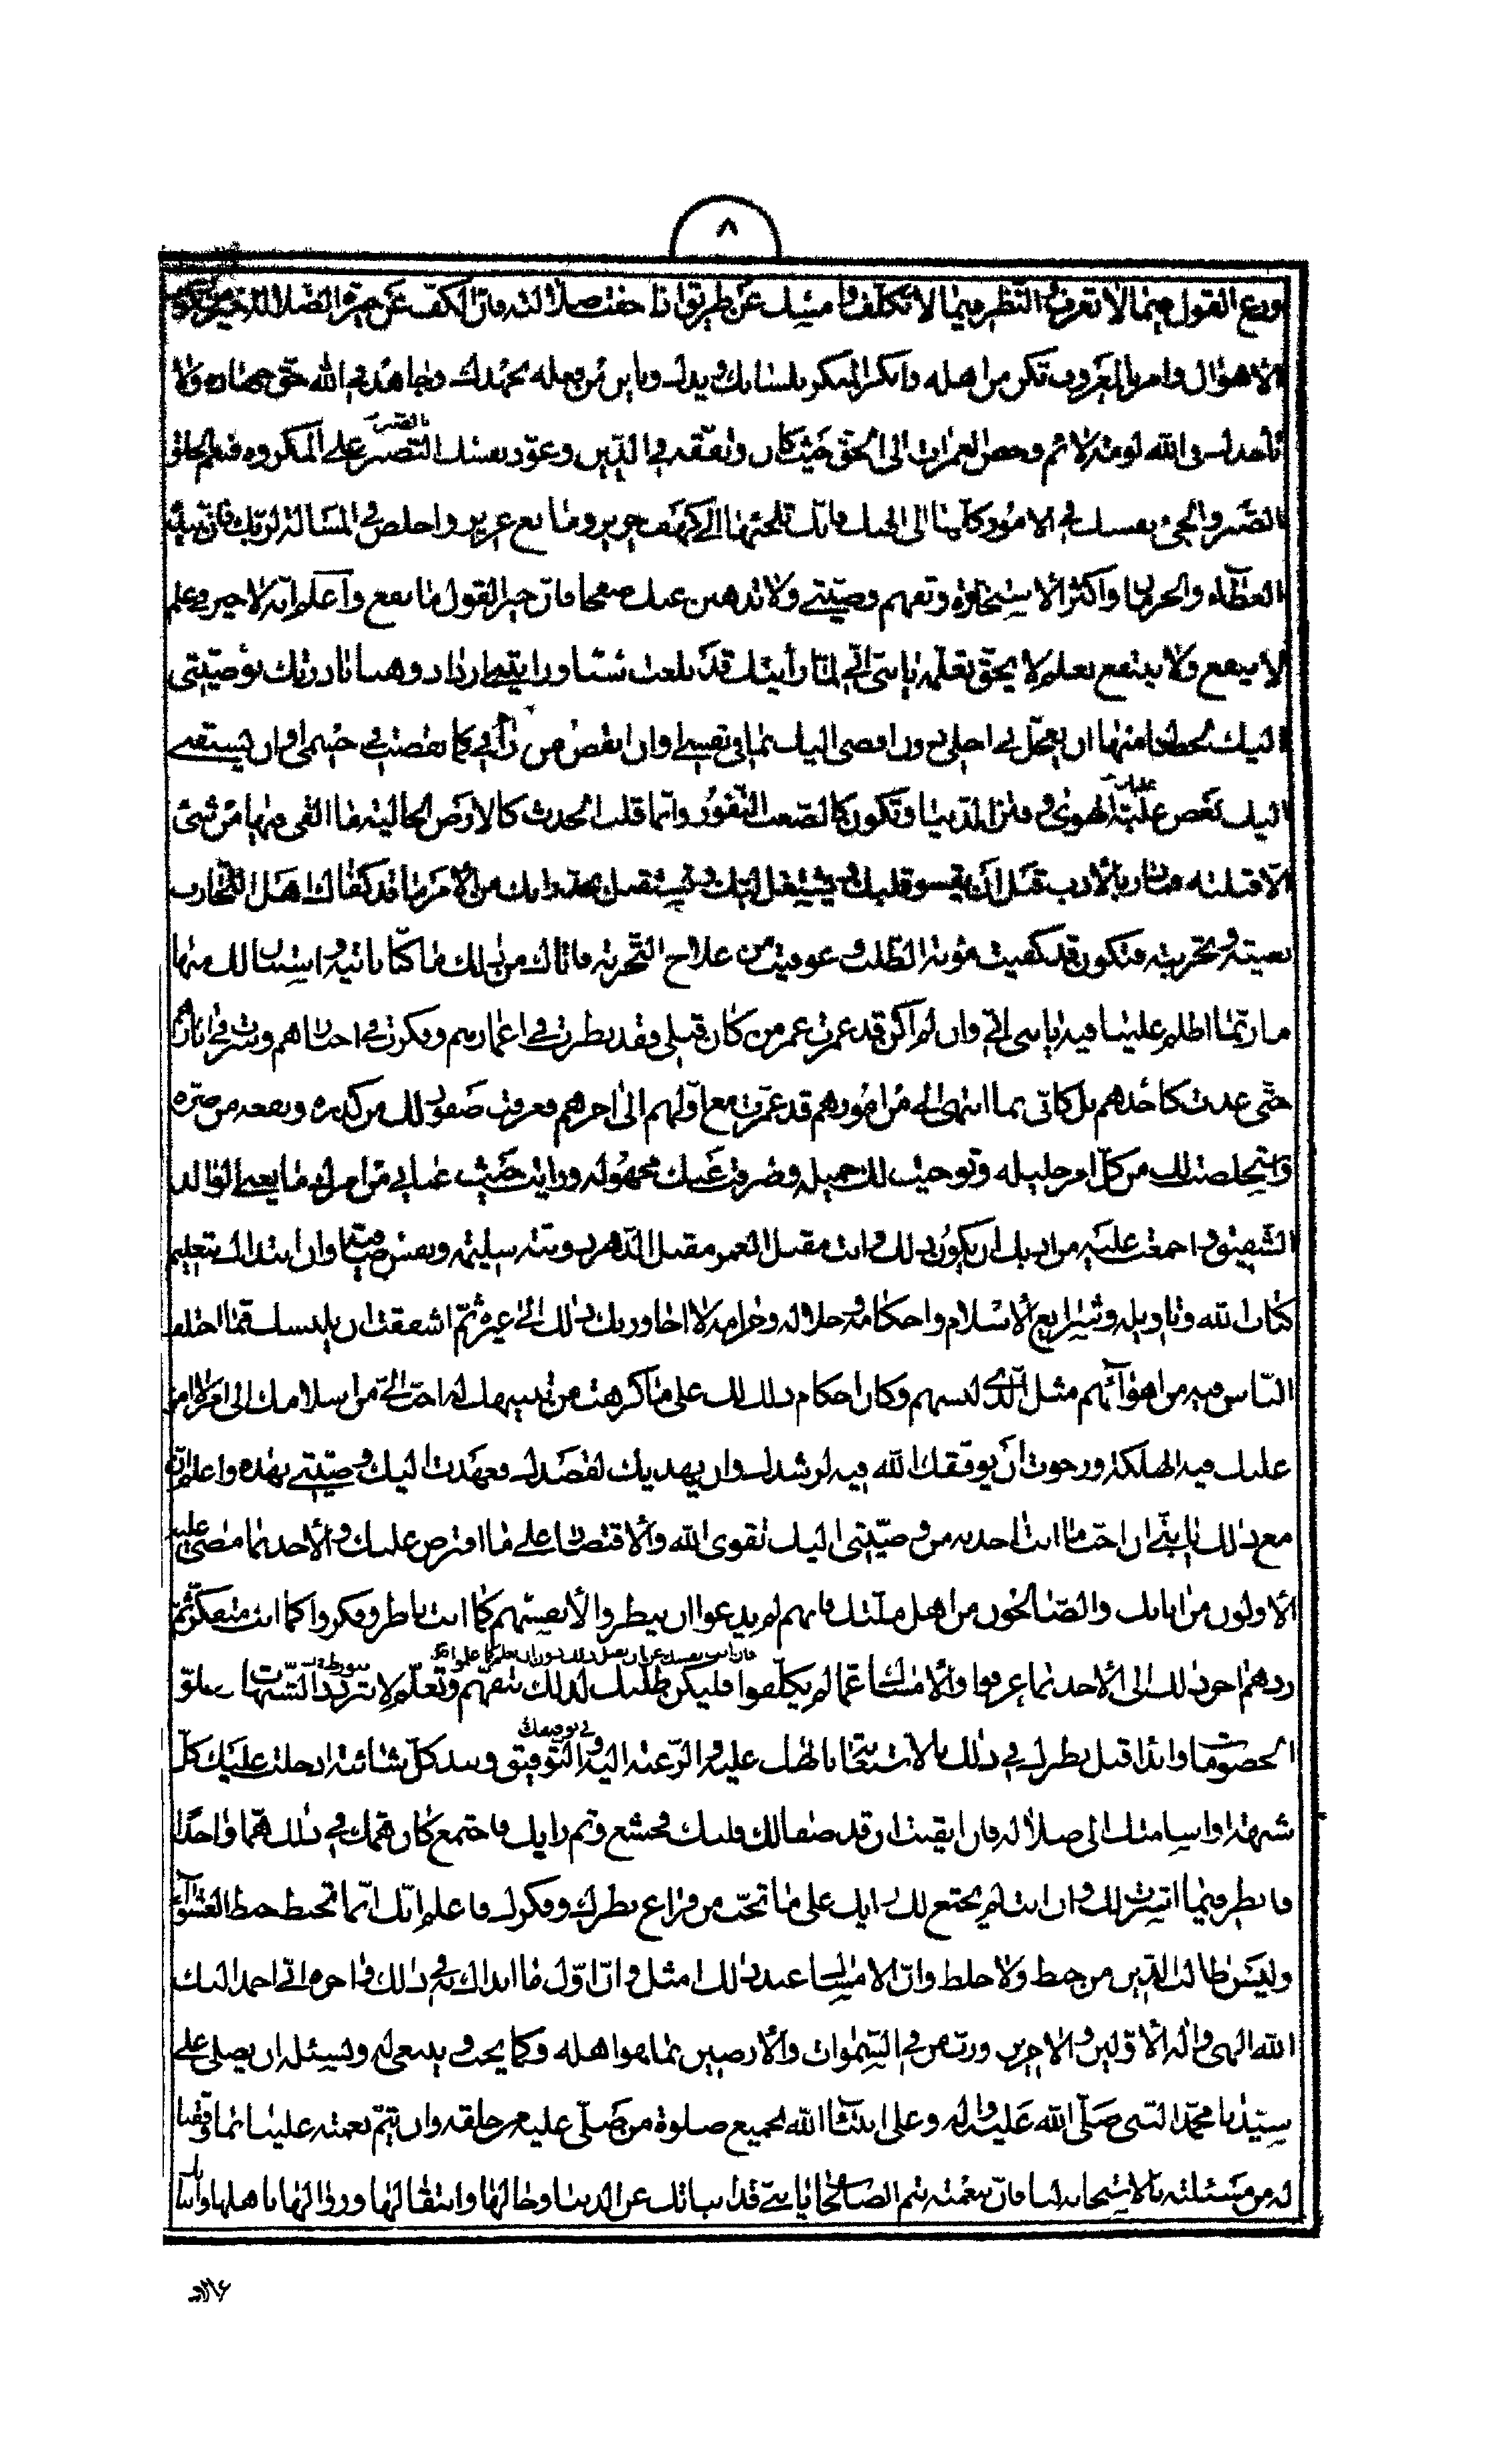 ٨
ودع القول فيما لا تعرف والنظر فيما لا تكلف وامسك عن طريق اذا خفت ضلالته فان الكف عن حيرة الضلالة خير من ركوب
الاهوال وامر بالمعروف تكن من اهله وانكر المنكر بلسانك ويدك وباين من فعله بجهدك وجاهد في الله حق جهاده ولا
تاخذك في الله لومة لائم وخض الغمرات الى الحق حيث كان وتفقه في الدين وعود نفسك التصبر على المكروه فنعم الخلق
بالصبر
التصبر والجئ نفسك في الامور كلها الى الهك فانك تلجئها الى كهف حريز ومانع عزيز واخلص في المسالة لربك فان بيده
العطاء والحرمان واكثر الاستخارة وتفهم وصيتي ولا تذهبن عنك صفحا فان خير القول ما نفع واعلم انه لا خير في علم
لا ينفع ولا ينتفع بعلم لا يحق تعلمه يا بني اني لما رأيتك قد بلغت سنا ورايتني ازداد وهنا بادرتك بوصيتي
اليك لخصال منها ان يعجل بي اجلي دون ان افضي اليك بما في نفسي او ان انقص في رأيي كما نقصت في جسمي او ان يسبقني
اليك بعض غلبة الهوى وفتن الدنيا وتكون كالصعب النفور وانما قلب الحدث كالارض الخالية ما القي فيها من شئ
الا قبلته فبادرتك بالادب قبل ان يقسو قلبك ويشتغل لبك وتستقبل بجد رايك من الامر ما قد كفاك اهل التجارب
بغيته وتجربته فتكون قد كفيت مؤنة الطلب وعوفيت من علاج التجربة فاتاك من ذلك ما كنا ناتيه واستبان لك منها
ما ربما اظلم علينا فيه يا بني اني وان لم اكن قد عمرت عمر من كان قبلي فقد نظرت في اعمارهم وفكرت في اخبارهم وسرت في اثارهم
حتى عدت كاحدهم بل كاني بما انتهى الي من امورهم قد عمرت مع اولهم الى اخرهم فعرفت صفو ذلك من كدره ونفعه من ضره
واستخلصت لك من كل امر جليله وتوخيت لك جميله وصرفت عنك مجهوله ورايت حيث عناني من امرك ما يعني الوالد
الشفيق واجمعت عليه من ادبك ان يكون ذلك وانت مقبل العمر مقبل الدهر ذو نية سليمة ونفس صافية وان ابتدئك بتعليم
كتاب الله وتاويله وشرايع الاسلام واحكامه وحلاله وحرامه لا اجاوز بك ذلك الى غيره ثم اشفقت ان يلبسك ما اختلف
الناس فيه من اهوائهم مثل الذي لبسهم وكان احكام ذلك لك على ما كرهت من تنبيهك له احب الي من اسلامك الى امر لا امن
عليك فيه الهلكة ورجوت ان يوفقك الله فيه لرشدك وان يهديك لقصدك فعهدت اليك وصيتي بهذه واعلم ان
مع ذلك يا بني ان احب ما انت اخذ به من وصيتي اليك تقوى الله والاقتصار على ما افترض عليك والاخذ بما مضى عليه
الاولون من ابائك والصالحون من اهل ملتك فانهم لم يدعوا ان ينظروا لانفسهم كما انت ناظر وفكروا كما انت متفكر ثم
ردهم اخر ذلك الى الاخذ بما عرفوا والامساك عما لم يكلفوا فليكن طلبك لذلك بتفهم وتعلم لا بتردد الشبهات وعلو
فان ابت نفسك عن ان تقبل ذلك دون ان تعلم كما علموا
الخصومات وابدا قبل نظرك في ذلك بالاستعانة بالهك عليه والرغبة اليه والتوفيق ونبذ كل شائبة ادخلت عليك كل
في توفيقك
شبهة او اسلمتك الى ضلالة فان ايقنت ان قد صفا لك قلبك فخشع وتم رايك فاجتمع كان همك في ذلك هما واحدا
فانظر فيما فسرت لك وان انت لم يجتمع لك رايك على ما تحب من فراغ نظرك وفكرك فاعلم انك انما تخبط خبط العشواء
وليس طالب الدين من خبط ولا خلط وان الامساك عند ذلك امثل وان اول ما ابداك به في ذلك واخره اني احمد اليك
الله الهي واله الاولين والاخرين ورب من في السموات والارضين بما هو اهله وكما يحب وينبغي له ونسئله ان يصلي على
سيدنا محمد النبي صلى الله عليه واله وعلى انبياء الله لجميع صلوة من صلى عليه من خلقه وان يتم نعمته علينا بما وفقنا
له من مسئلته بالاستجابة لنا فان بنعمته تتم الصالحات يا بني قد انباتك عن الدنيا وحالها وانتقالها وزوالها باهلها وانبأتك